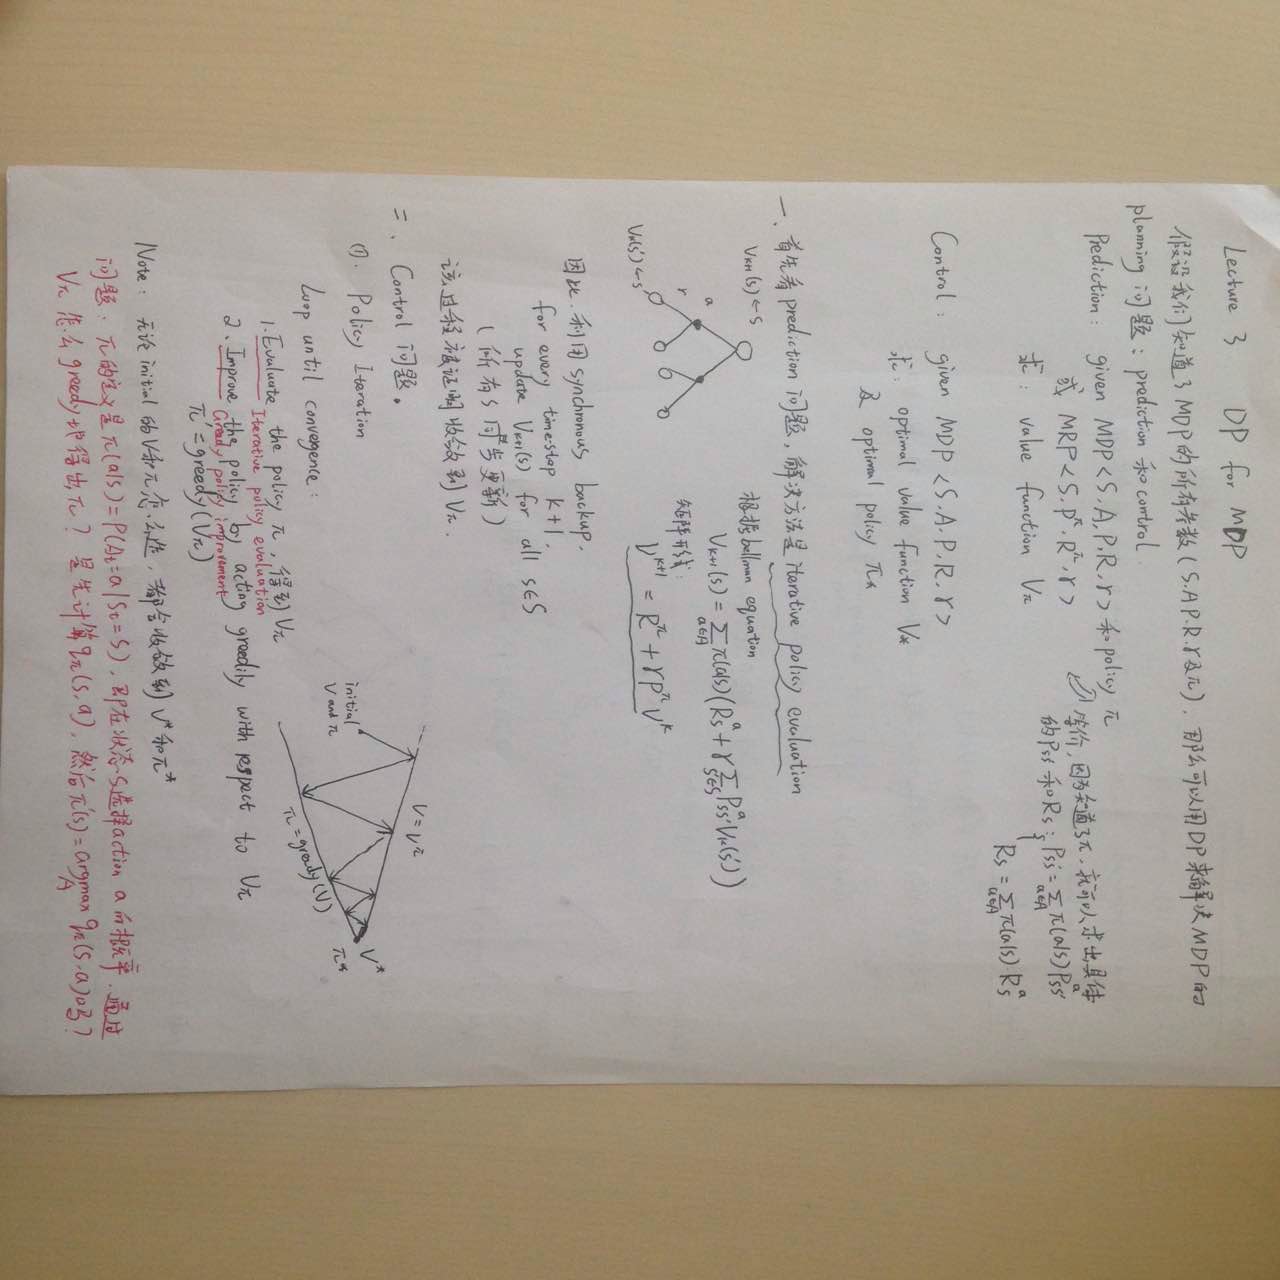 Lecture 3 DP for MDP
假设我们知道了MDP的所有参数(S.A P.R.γ及π). 那么可以用DP来解决MDP的
planning 问题: prediction 和control.
Prediction: given MDP<S.A,P,R,γ>和policy π
或 MRP<S.P^π.R^π.γ>
求: value function Vπ
等价, 因为知道了π. 就可以求出具体
的Pss' 和Rs: Pss' = ∑_{a∈A} π(a|s) P^a_{ss'}
Rs = ∑_{a∈A} π(a|s)·R^a_s
Control: given MDP <S.A.P.R.γ>
求: optimal value function V*
及 optimal policy π*
一、首先看prediction 问题, 解决方法是iterative policy evaluation
V_{k+1}(s)←s
a
r
V_k(s')←s'
根据bellman equation
V_{k+1}(s) = ∑_{a∈A} π(a|s)(R^a_s + γ∑_{s'∈S} P^a_{ss'} V_k(s'))
矩阵形式:
V^{k+1} = R^π + γP^π V^k
因此. 利用synchronous backup.
for every time-step k+1.
update V_{k+1}(s) for all s∈S
(所有s 同步更新)
该过程被证明收敛到Vπ.
二、Control 问题。
(1). Policy Iteration
V = V^π
initial
V and π
V*
π*
π = gready(V)
Loop until convergence:
1. Evaluate the policy π, 得到Vπ
Iterative policy evaluation
2. Improve the policy by acting greedily with respect to Vπ
Gready policy improvement
π' = greedy(Vπ)
Note: 无论initial的V和π怎么选, 都会收敛到V*和π*
问题: π的定义是π(a|s)=P(At=a|St=s), 即在状态s选择action a的概率. 通过
Vπ怎么greedy地得出π? 是先计算qπ(s,a), 然后π'(s)=argmax_A qπ(s,a)吗?